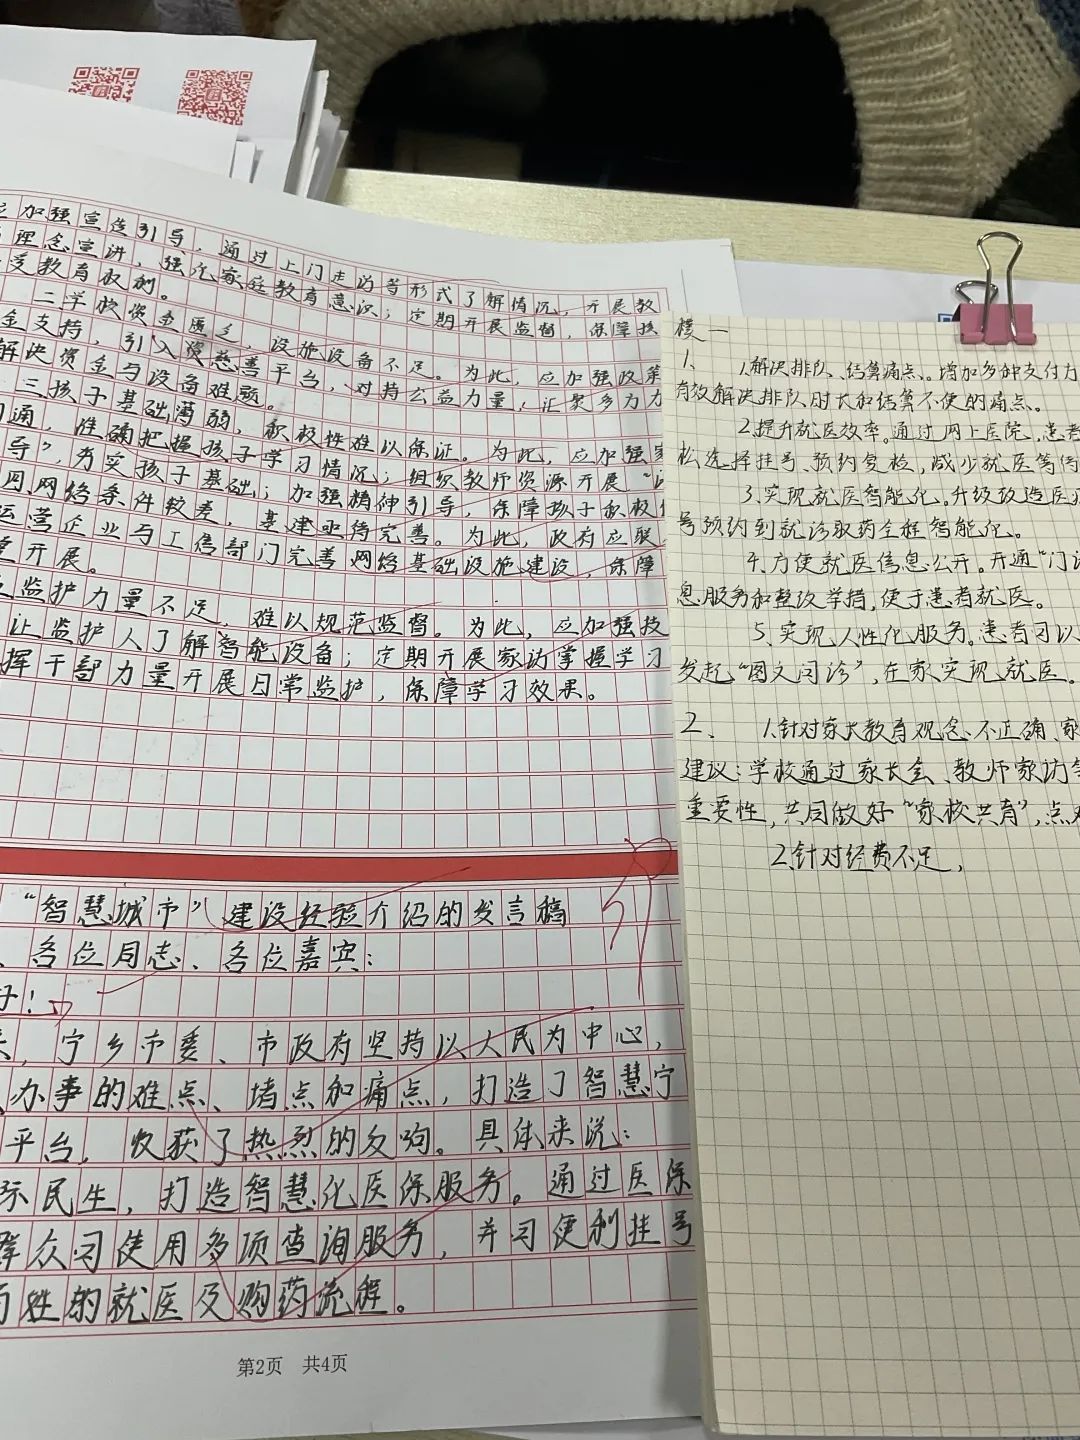 应加强宣传引导，通过上门走访等形式了解情况，开展教
理念宣讲，强化家庭教育意识；定期开展监督，保障孩
受教育权利。
二学校资金匮乏，设施设备不足。为此，应加强政策
金支持，引入资慈善平台，对持公益力量，汇聚多方力
解决资金与设备难题。
三孩子基础薄弱，积极性难以保证。为此，应加强家
沟通，准确把握孩子学习情况；组织教师资源开展“
导”，夯实孩子基础；加强精神引导，保障孩子积极性
四网络条件较差，基建亟待完善。为此，政府应联
运营企业与工信部门完善网络基础设施建设，保障
开展。
监护力量不足，难以规范监督。为此，应加强技
让监护人了解智能设备；定期开展家访掌握学习
挥干部力量开展日常监护，保障学习效果。
“智慧城市”建设经验介绍的发言稿
、各位同志、各位嘉宾：
好！
来，宁乡市委、市政府坚持以人民为中心，
办事的难点、堵点和痛点，打造了智慧宁
平台，收获了热烈的反响。具体来说：
际民生，打造智慧化医保服务。通过医保
群众可使用多项查询服务，并可便利挂号
百姓的就医及购药流程。
第2页 共4页
楼一
1、
1.解决排队、结算痛点。增加多种支付方
有效解决排队时长和结算不便的痛点。
2.提升就医效率。通过网上医院，患者
松选择挂号、预约复检，减少就医等待
3.实现就医智能化。升级改造医疗
号预约到就诊取药全程智能化。
4.方便就医信息公开。开通“门诊
息服务和整改举措，便于患者就医。
5.实现人性化服务。患者可以
发起“图文问诊”，在家实现就医。
2、 1.针对家长教育观念不正确、家
建议：学校通过家长会、教师家访等
重要性，共同做好“家校共育”，点对
2.针对经费不足，